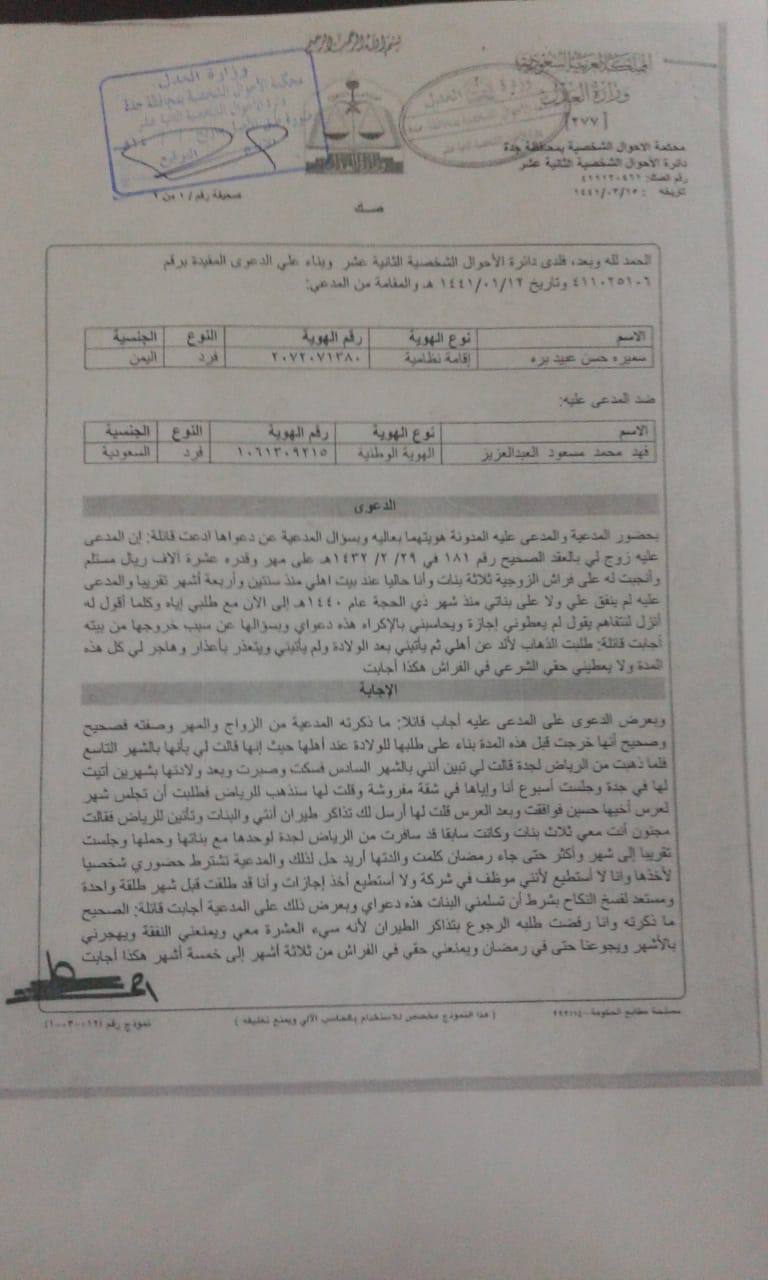 بسم الله الرحمن الرحيم
المملكة العربية السعودية
وزارة العدل
[٢٧٧]
محكمة الأحوال الشخصية بمحافظة جدة
دائرة الأحوال الشخصية الثانية عشر
رقم الصك:
تاريخه : ١٤٤١/٠٣/١٥
وزارة العدل
محكمة الأحوال الشخصية بمحافظة جدة
صحيفة رقم / ١ من ٢
صك
الحمد لله وبعد، فلدى دائرة الأحوال الشخصية الثانية عشر وبناء علي الدعوى المقيدة برقم
٤١١٠٢٥١٠٦ وتاريخ ١٤٤١/٠١/١٢ هـ والمقامة من المدعي:
الاسم نوع الهوية رقم الهوية النوع الجنسية
سميره حسن عبيد بره إقامة نظامية ٢٠٧٢٠٧١٣٨٠ فرد اليمن
ضد المدعى عليه:
الاسم نوع الهوية رقم الهوية النوع الجنسية
فهد محمد مسعود العبدالعزيز الهوية الوطنية ١٠٦١٣٠٩٢١٥ فرد السعودية
الدعوى
بحضور المدعية والمدعى عليه المدونة هويتهما بعاليه وبسؤال المدعية عن دعواها ادعت قائلة: إن المدعى
عليه زوج لي بالعقد الصحيح رقم ١٨١ في ٢٩/ ٢/ ١٤٣٢هـ على مهر وقدره عشرة آلاف ريال مستلم
وأنجبت له على فراش الزوجية ثلاثة بنات وأنا حاليا عند بيت اهلي منذ سنتين وأربعة أشهر تقريبا والمدعى
عليه لم ينفق علي ولا على بناتي منذ شهر ذي الحجة عام ١٤٤٠هـ إلى الآن مع طلبي إياه وكلما أقول له
أنزل لنتفاهم يقول لم يعطوني إجازة ويحاسبني بالإكراه هذه دعواي وبسؤالها عن سبب خروجها من بيته
أجابت قائلة: طلبت الذهاب لألد عن أهلي ثم يأتيني بعد الولادة ولم يأتيني ويتعذر بأعذار وهاجر لي كل هذه
المدة ولا يعطيني حقي الشرعي في الفراش هكذا أجابت
الإجابة
وبعرض الدعوى على المدعى عليه أجاب قائلا: ما ذكرته المدعية من الزواج والمهر وصفته فصحيح
وصحيح أنها خرجت قبل هذه المدة بناء على طلبها للولادة عند أهلها حيث إنها قالت لي بأنها بالشهر التاسع
فلما ذهبت من الرياض لجدة قالت لي تبين أنني بالشهر السادس فسكت وصبرت وبعد ولادتها بشهرين أتيت
لها في جدة وجلست أسبوع أنا وإياها في شقة مفروشة وقلت لها سنذهب للرياض فطلبت أن تجلس شهر
لعرس أخيها حسين فوافقت وبعد العرس قلت لها أرسل لك تذاكر طيران أنتي والبنات وتأتين للرياض فقالت
مجنون أنت معي ثلاث بنات وكانت سابقا قد سافرت من الرياض لجدة لوحدها مع بناتها وحملها وجلست
تقريبا إلى شهر وأكثر حتى جاء رمضان كلمت والدتها أريد حل لذلك والمدعية تشترط حضوري شخصيا
لأخذها وانا لا أستطيع لأنني موظف في شركة ولا أستطيع أخذ إجازات وأنا قد طلقت قبل شهر طلقة واحدة
ومستعد لفسخ النكاح بشرط أن تسلمني البنات هذه دعواي وبعرض ذلك على المدعية أجابت قائلة: الصحيح
ما ذكرته وانا رفضت طلبه الرجوع بتذاكر الطيران لأنه سيء العشرة معي ويمنعني النفقة ويهجرني
بالأشهر ويجوعنا حتى في رمضان ويمنعني حقي في الفراش من ثلاثة أشهر إلى خمسة أشهر هكذا أجابت
مصلحة مطابع الحكومة
( هذا النموذج مخصص للاستخدام بالحاسب الآلي ويمنع تغليفه )
نموذج رقم